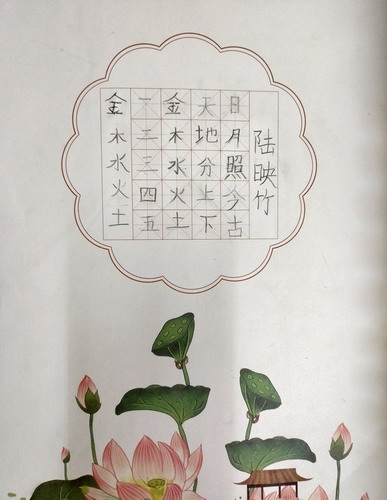 陆映竹
日月照今古
天地分上下
金木水火土
一二三四五
金木水火土